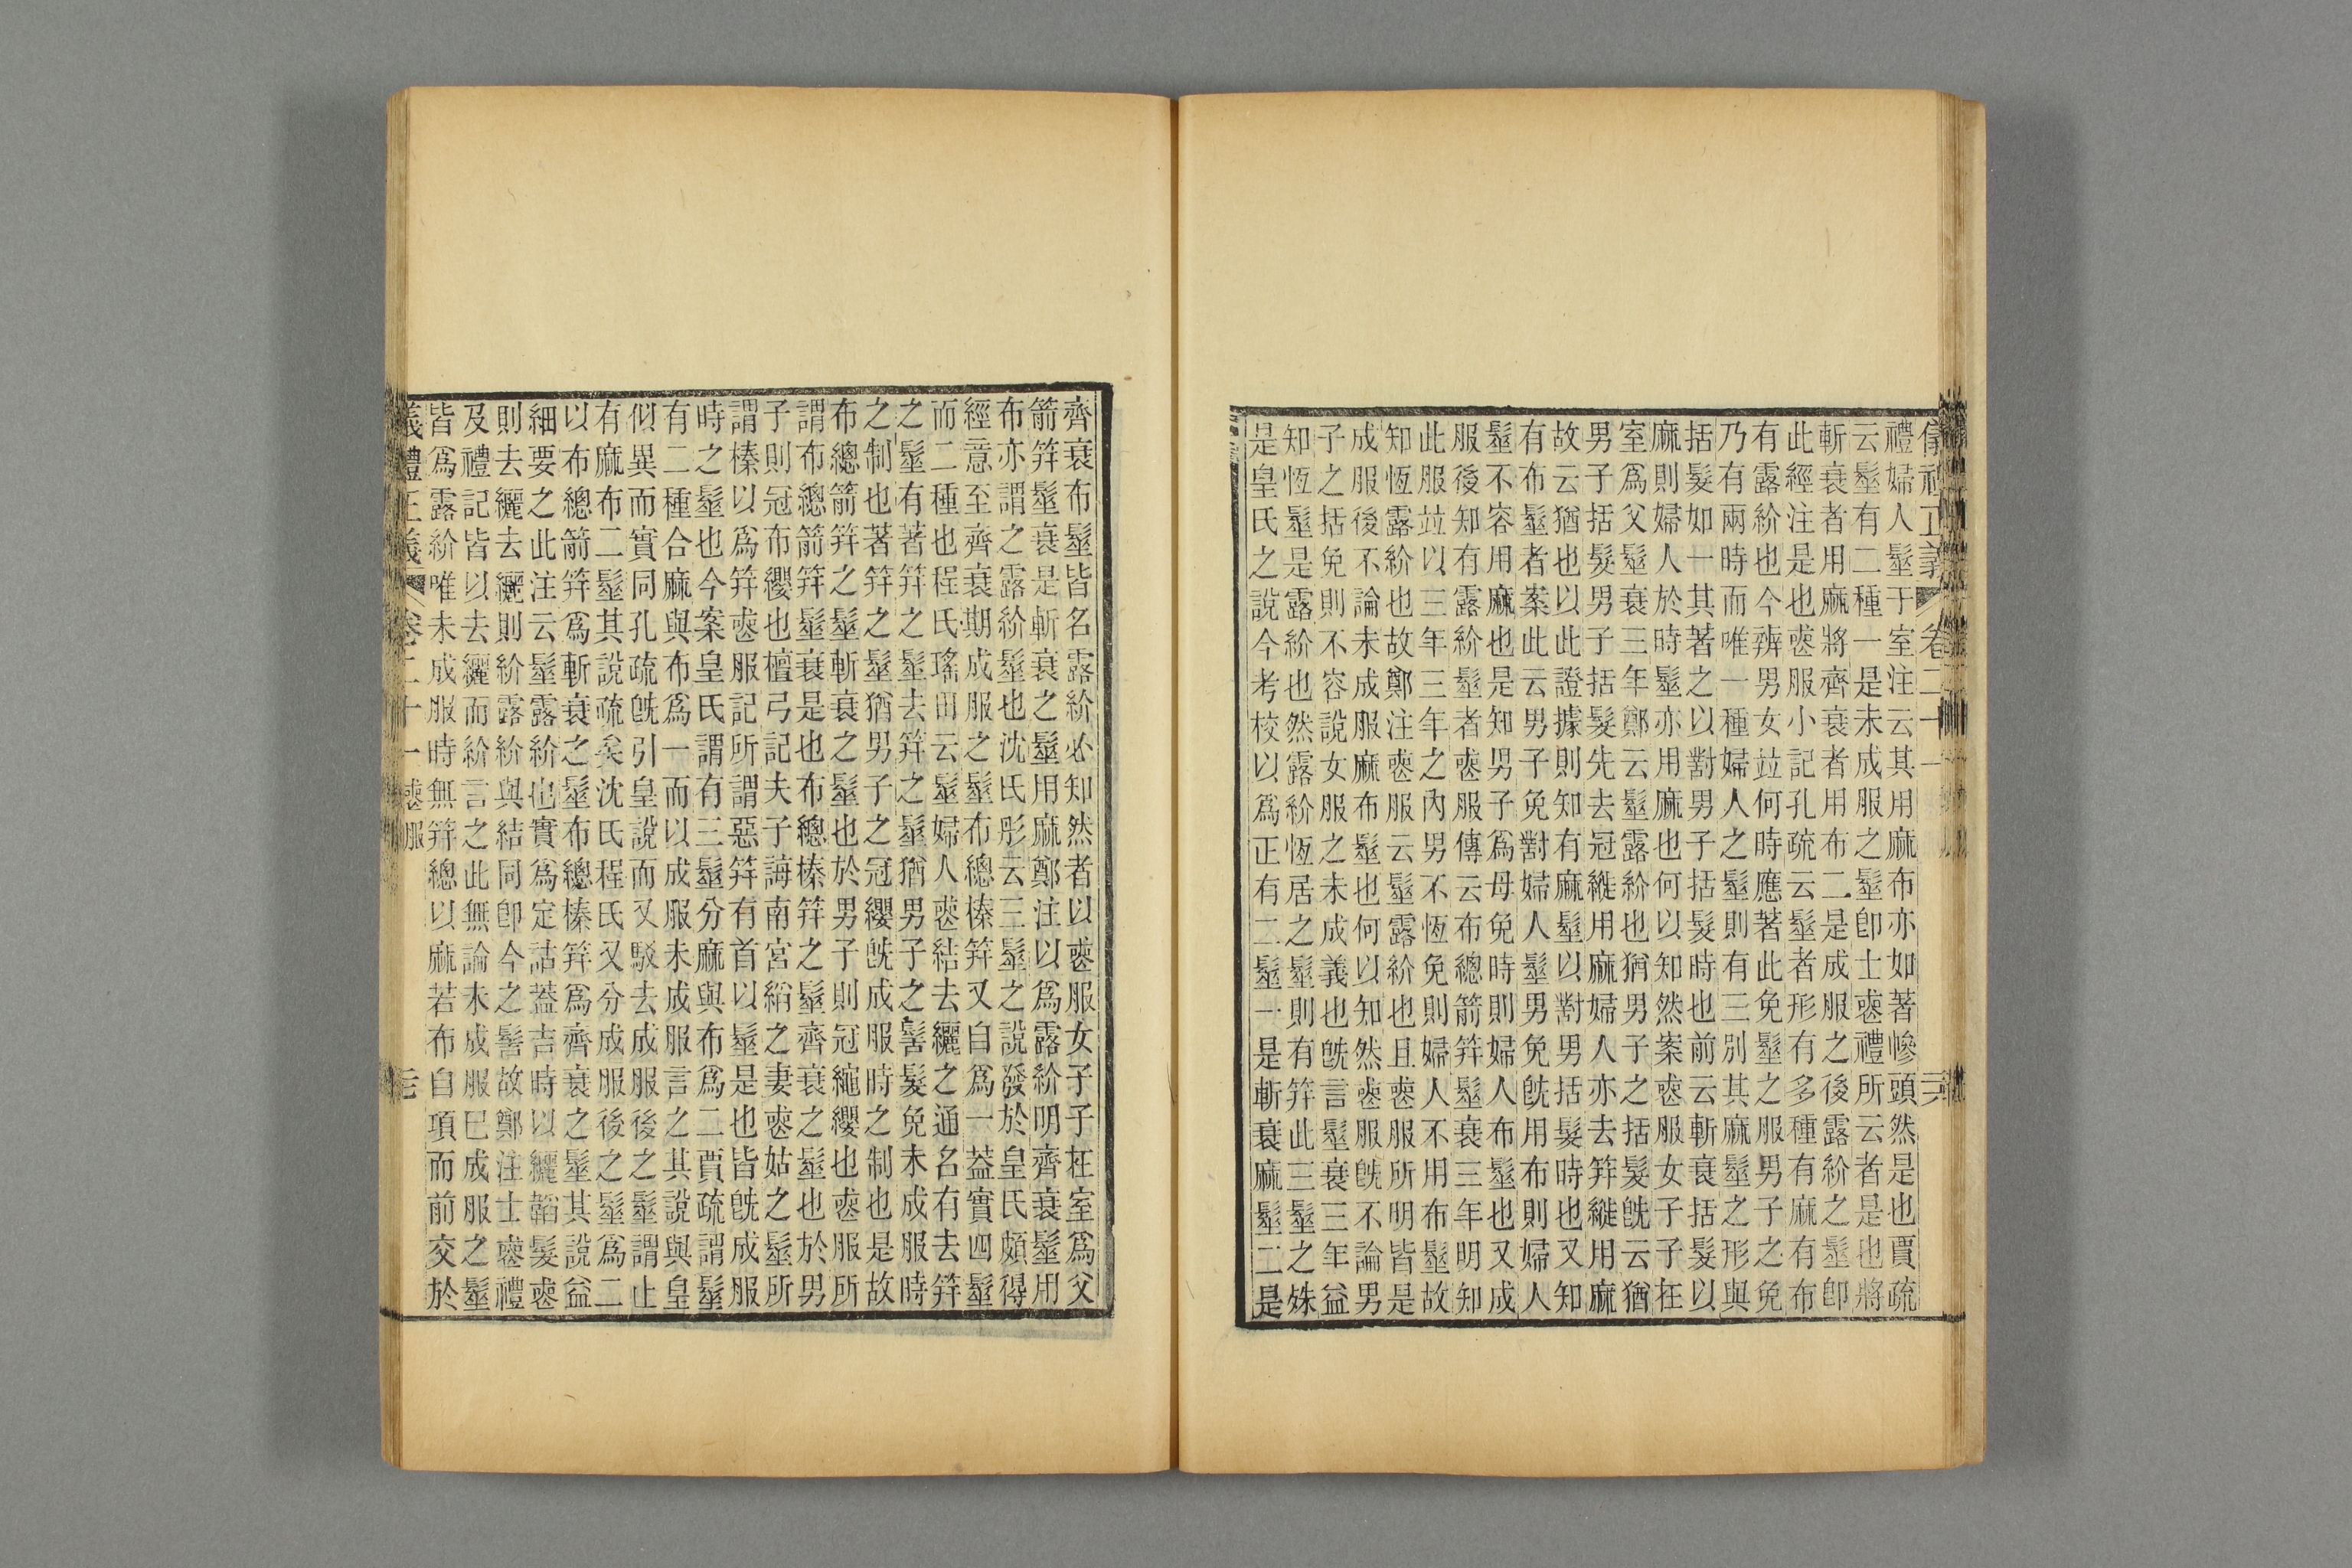 禮婦人髽于室注云其用麻布亦如著幓頭然是也賈疏
云髽有二種一是未成服之髽卽士喪禮所云者是也將
斬衰者用麻將齊衰者用布二是成服之後露紒之髽卽
此經注是也喪服小記孔疏云髽者形有多種有麻有布
有露紒也今辨男女竝何時應著此免髽之服男子之免
乃有兩時而唯一種婦人之髽則有三別其麻髽之形與
括髮如一其著之以對男子括髮時也前云斬衰括髮以
麻則婦人於時髽亦用麻也何以知然案喪服女子子在
室爲父髽衰三年鄭云髽露紒也猶男子之括髮旣云猶
男子括髮男子括髮先去冠縰用麻婦人亦去笄縰用麻
故云猶也以此證據則知有麻髽以對男括髮時也又知
有布髽者案此云男子免對婦人髽男免旣用布則婦人
髽不容用麻也是知男子爲母免時則婦人布髽也又成
服後知有露紒髽者喪服傳云布總箭笄髽衰三年明知
此服竝以三年三年之內男不恆免則婦人不用布髽故
知恆露紒也故鄭注喪服云髽露紒也且喪服所明皆是
成服後不論未成服麻布髽也何以知然喪服旣不論男
子之括免則不容說女服之未成義也旣言髽衰三年益
知恆髽是露紒也然露紒恆居之髽則有笄此三髽之殊
是皇氏之說今考校以爲正有二髽一是斬衰麻髽二是
齊衰布髽皆名露紒必知然者以喪服女子子在室爲父
箭笄髽衰是斬衰之髽用麻鄭注以爲露紒明齊衰髽用
布亦謂之露紒髽也沈氏彤云三髽之說發於皇氏頗得
經意至齊衰期成服之髽布總榛笄又自爲一蓋實四髽
而二種也程氏瑤田云髽婦人喪結去纚之通名有去笄
之髽有著笄之髽去笄之髽猶男子之髺髮免未成服時
之制也著笄之髽猶男子之冠纓旣成服時之制也是故
布總箭笄之髽斬衰之髽也於男子則冠繩纓也喪服所
謂布總箭笄髽衰是也布總榛笄之髽齊衰之髽也於男
子則冠布纓也檀弓記夫子誨南宮縚之妻喪姑之髽所
謂榛以爲笄喪服記所謂惡笄有首以髽是也皆旣成服
時之髽也今案皇氏謂有三髽分麻與布爲二賈疏謂髽
有二種合麻與布爲一而以成服未成服言之其說與皇
似異而實同孔疏旣引皇說而又駁去成服後之髽謂止
有麻布二髽其說疏矣沈氏程氏又分成服後之髽爲二
以布總箭笄爲斬衰之髽布總榛笄爲齊衰之髽其說益
細要之此注云髽露紒也實爲定詁蓋吉時以纚韜髮喪
則去纚去纚則紒露紒與結同卽今之髻故鄭注士喪禮
及禮記皆以去纚而紒言之此無論未成服已成服之髽
皆爲露紒唯未成服時無笄總以麻若布自項而前交於
儀禮正義 卷二十一 喪服